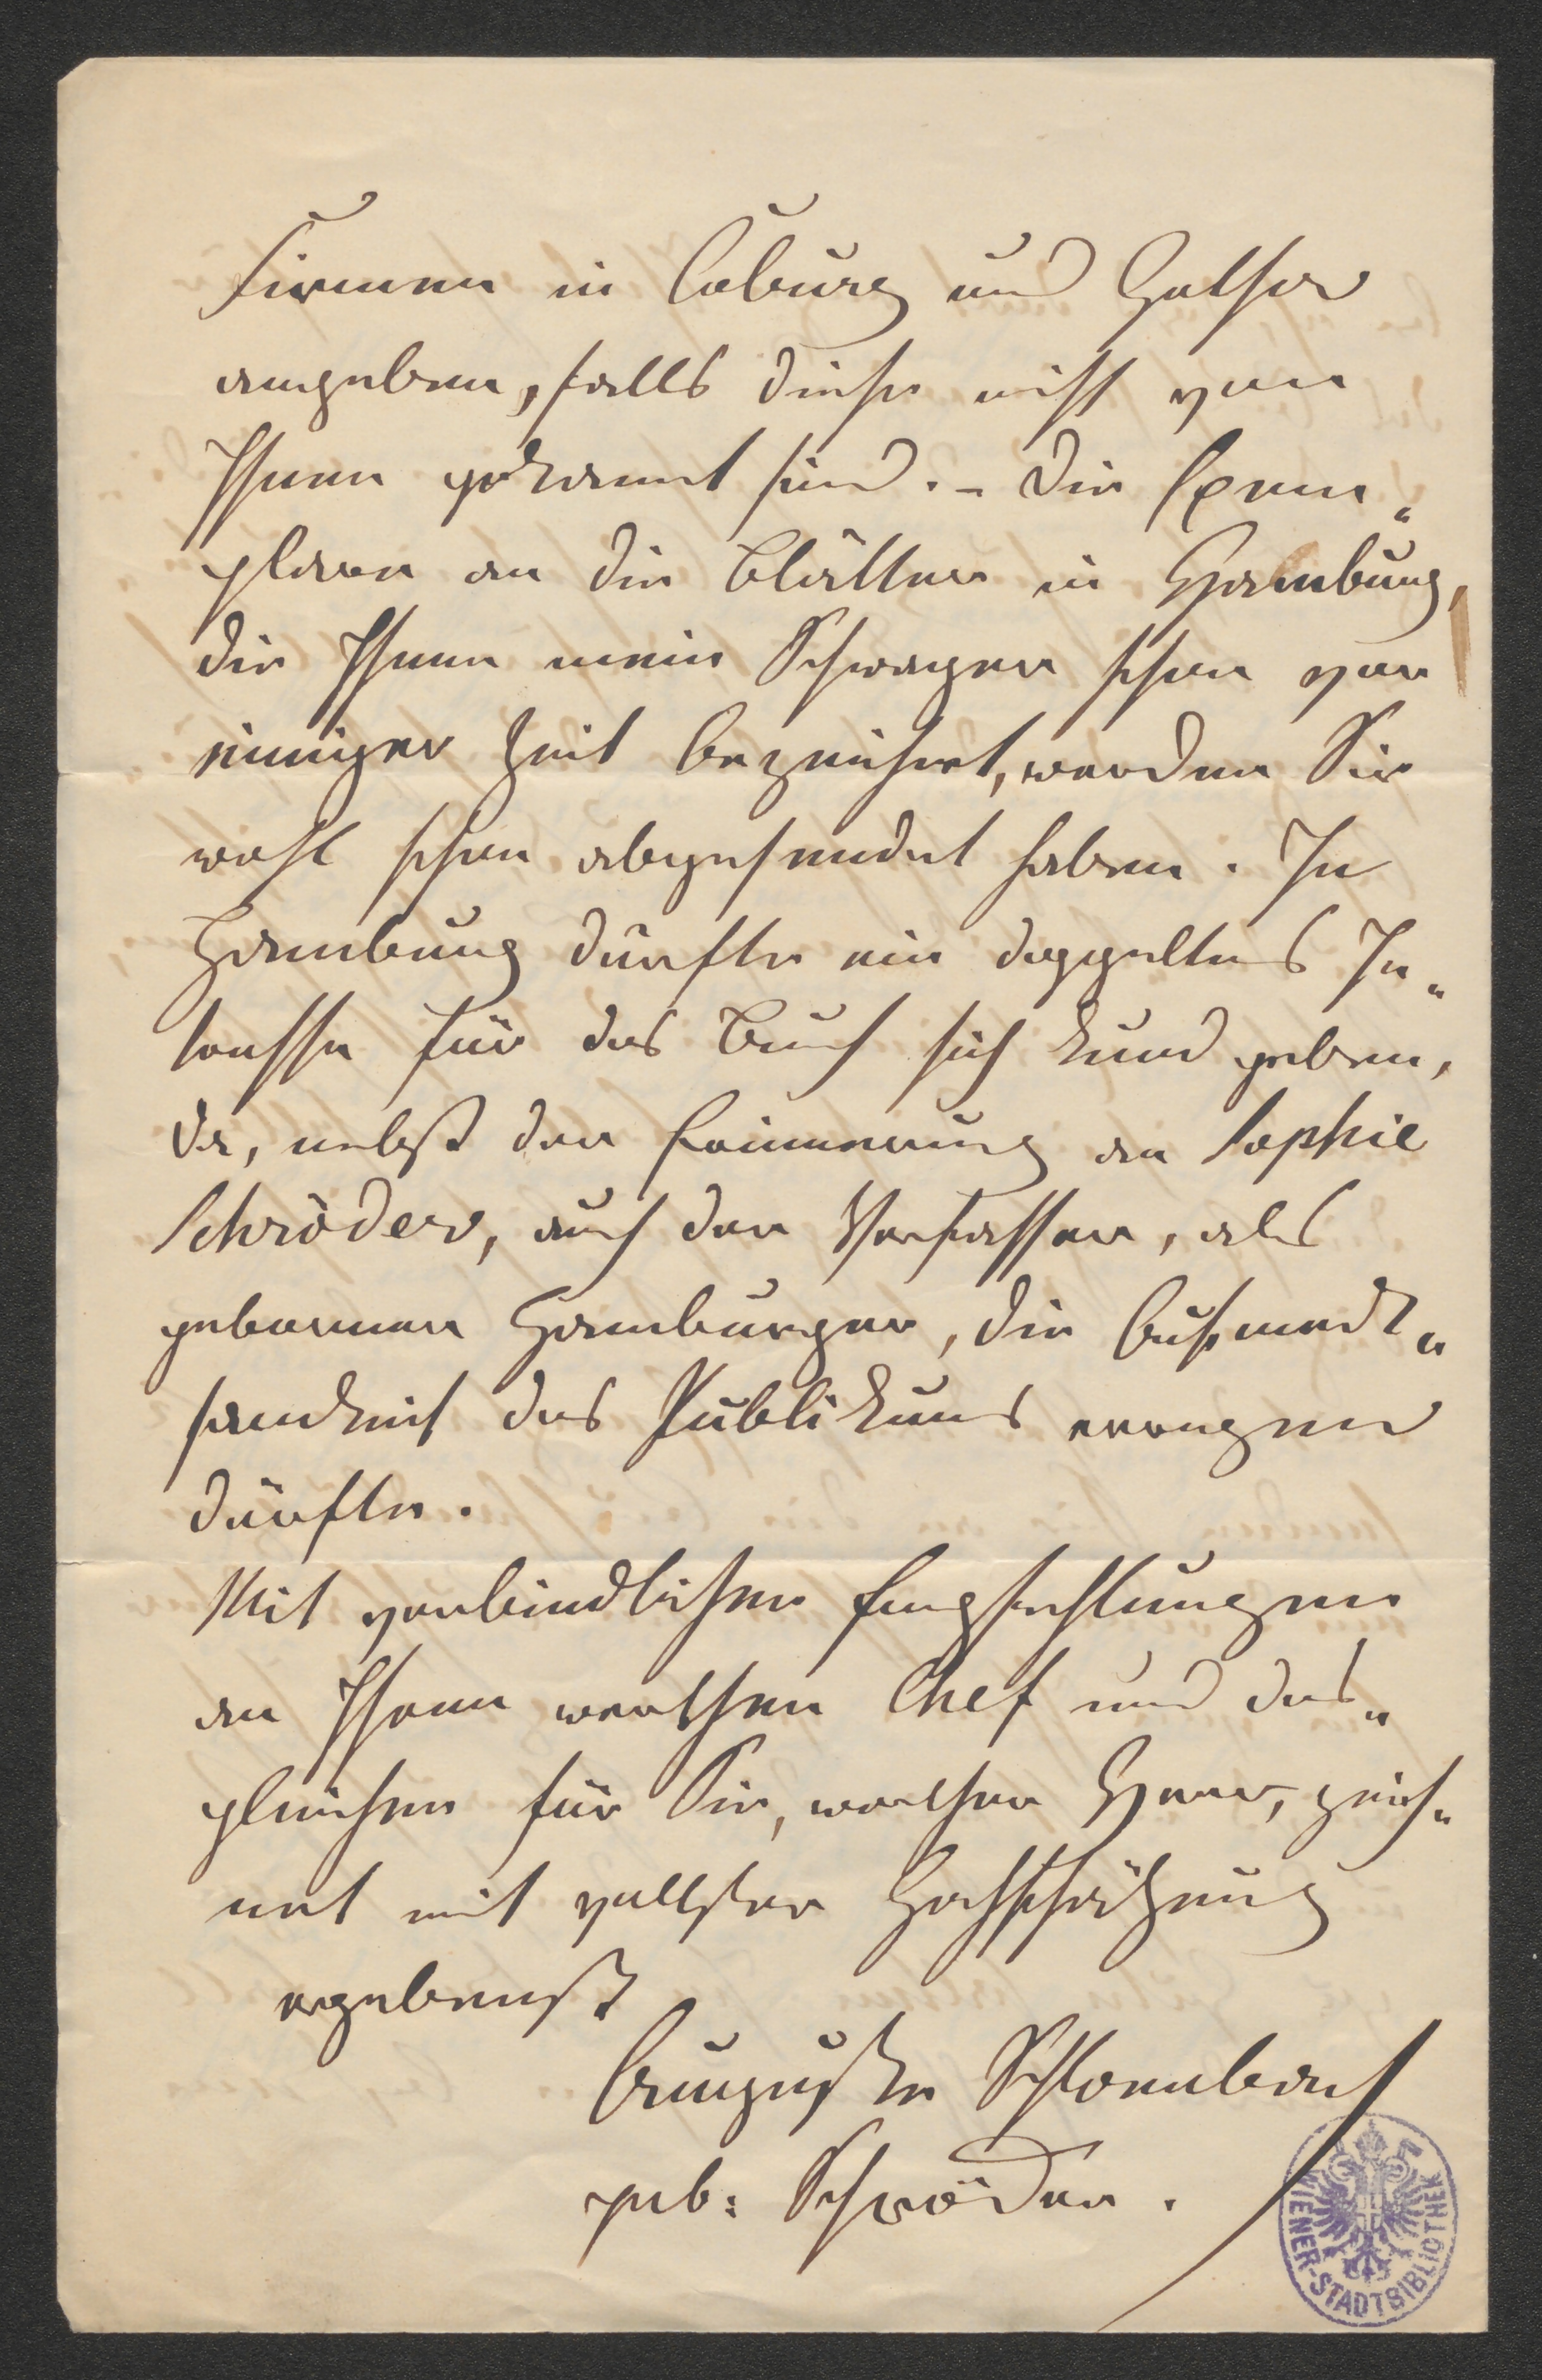 Firmen in Coburg und Gotha
angeben, falls diese nicht von
Ihnen gekannt sind. – Die Exem„
plare an die Blätter in Hamburg,
die Ihnen mein Schwager schon vor
einiger Zeit bezeichnet, werden Sie
wohl schon abgesendet haben. In
Hamburg dürfte ein doppeltes In„
teresse für das Buch sich kund geben,
da, nebst der Erinnerung an Sophie
Schröder, auch der Verfasser, als
geborener Hamburger, die Aufmerk„
samkeit des Publikums erregen
dürfte.
Mit verbindlichen Empfehlungen
an Ihren werthen Chef und des„
gleichen für Sie, werther Herr, zeich„
net mit vollster Hochschätzung
ergebenst
Auguste Schlönbach
geb: Schröder.
WIENER-STADTBIBLIOTHEK